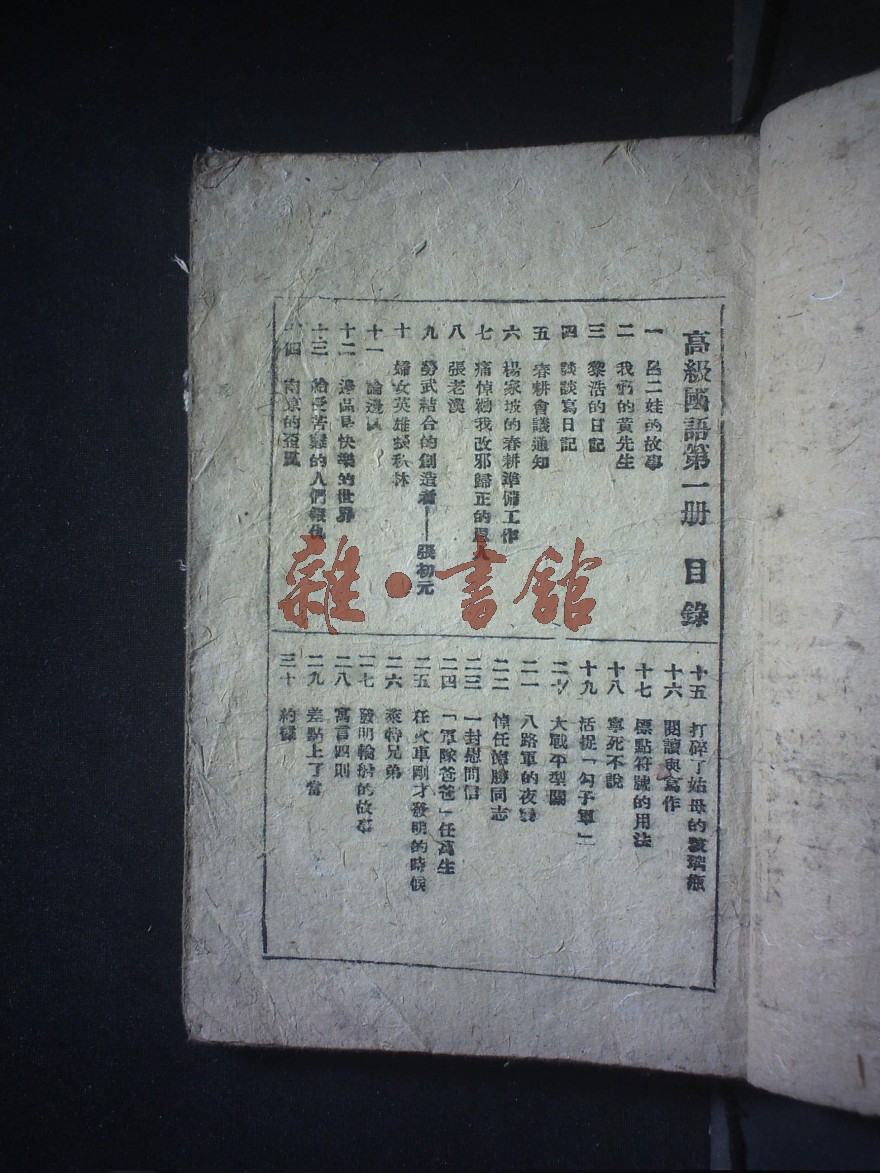 高級國語第一册 目錄
一 呂二娃的故事
二 我們的黄先生
三 黎浩的日記
四 談談寫日記
五 春耕會議通知
六 楊家坡的春耕準備工作
七 痛悼勸我改邪歸正的恩人
八 張老漢
九 勞武結合的創造者——張初元
十 婦女英雄張秋林
十一 論邊區
十二 邊區是快樂的世界
十三 給受苦難的人們報仇
十四 南京的歪風
十五 打碎了姑母的玻璃瓶
十六 閱讀與寫作
十七 標點符號的用法
十八 寧死不說
十九 活捉「勾子軍」
二十 大戰平型關
二一 八路軍的夜襲
二二 悼任德勝同志
二三 一封慰問信
二四 「軍隊爸爸」任萬生
二五 在火車剛才發明的時候
二六 萊特兄弟
二七 發明輪船的故事
二八 寓言四則
二九 差點上了當
三十 約據
雜·書舘